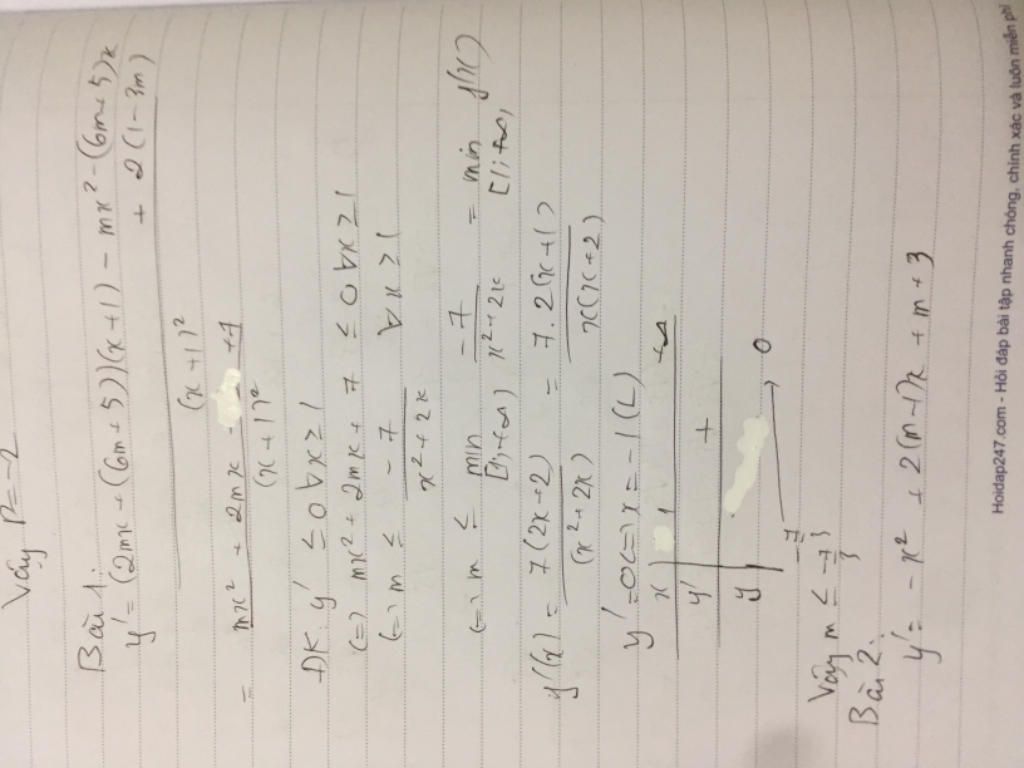 Vậy P = -2
Bài 1:
y' = (2mx + (6m + 5))(x + 1) - mx² - (6m + 5)x
+ 2(1 - 3m)
(x + 1)²
= mx² + 2mx + 7
(x + 1)²
ĐK: y' ≤ 0 ∀x ≥ 1
(=) mx² + 2mx + 7 ≤ 0 ∀x ≥ 1
(=) m ≤ -7 ∀x ≥ 1
x² + 2x
(=) m ≤ min -7 = min f(x)
[1, +∞) x² + 2x [1; +∞)
y'(x) = 7(2x + 2) = 7.2(x + 1)
(x² + 2x) x(x + 2)
y' = 0 (=) x = -1 (L)
x 1 +∞
y' +
y 0
-7
3
Vậy m ≤ -7
3
Bài 2:
y' = -x² + 2(m-1)x + m + 3
Hoidap247.com - Hỏi đáp bài tập nhanh chóng, chính xác và luôn miễn phí